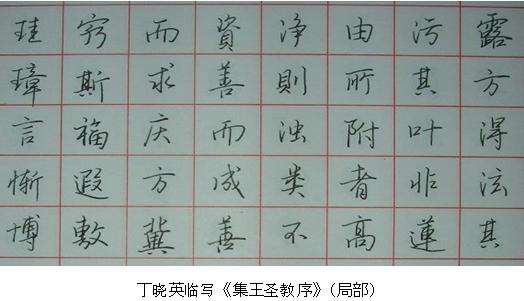 露方得泫其
污其叶非蓮
由所附者高
净則浊类不
資善而成善
而求庆方冀
穷斯福遐敷
珪璋言惭博
丁晓英临写《集王圣教序》(局部)